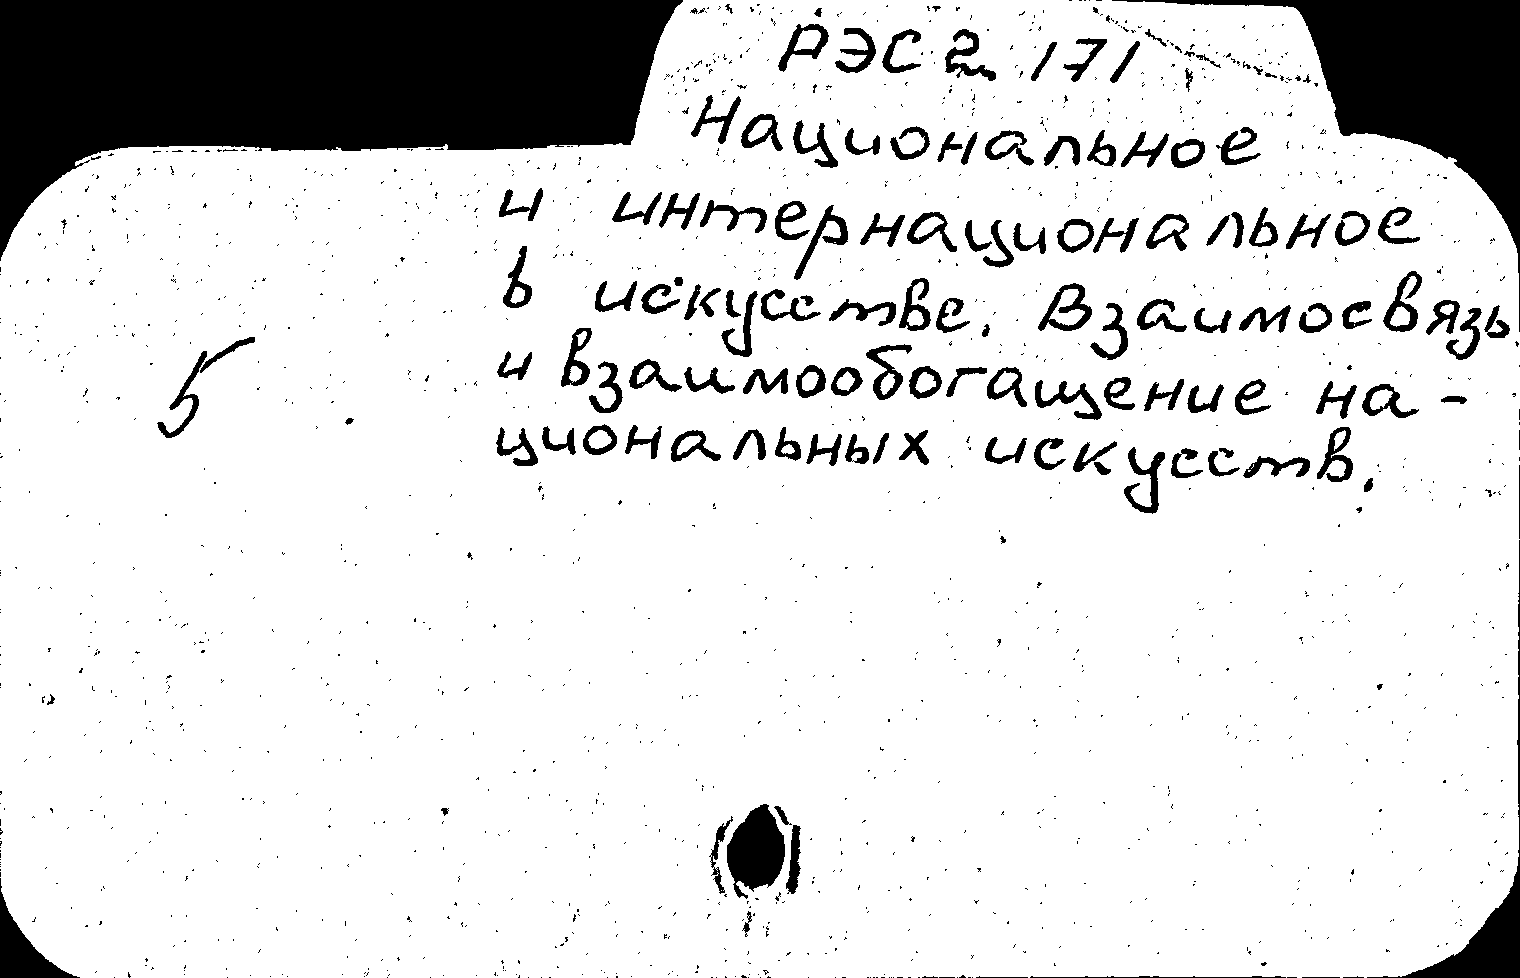 РЭС 2 171
Национальное
и интернациональное
в искусстве. Взаимосвязь
5
и взаимообогащение на-
циональных искусств.